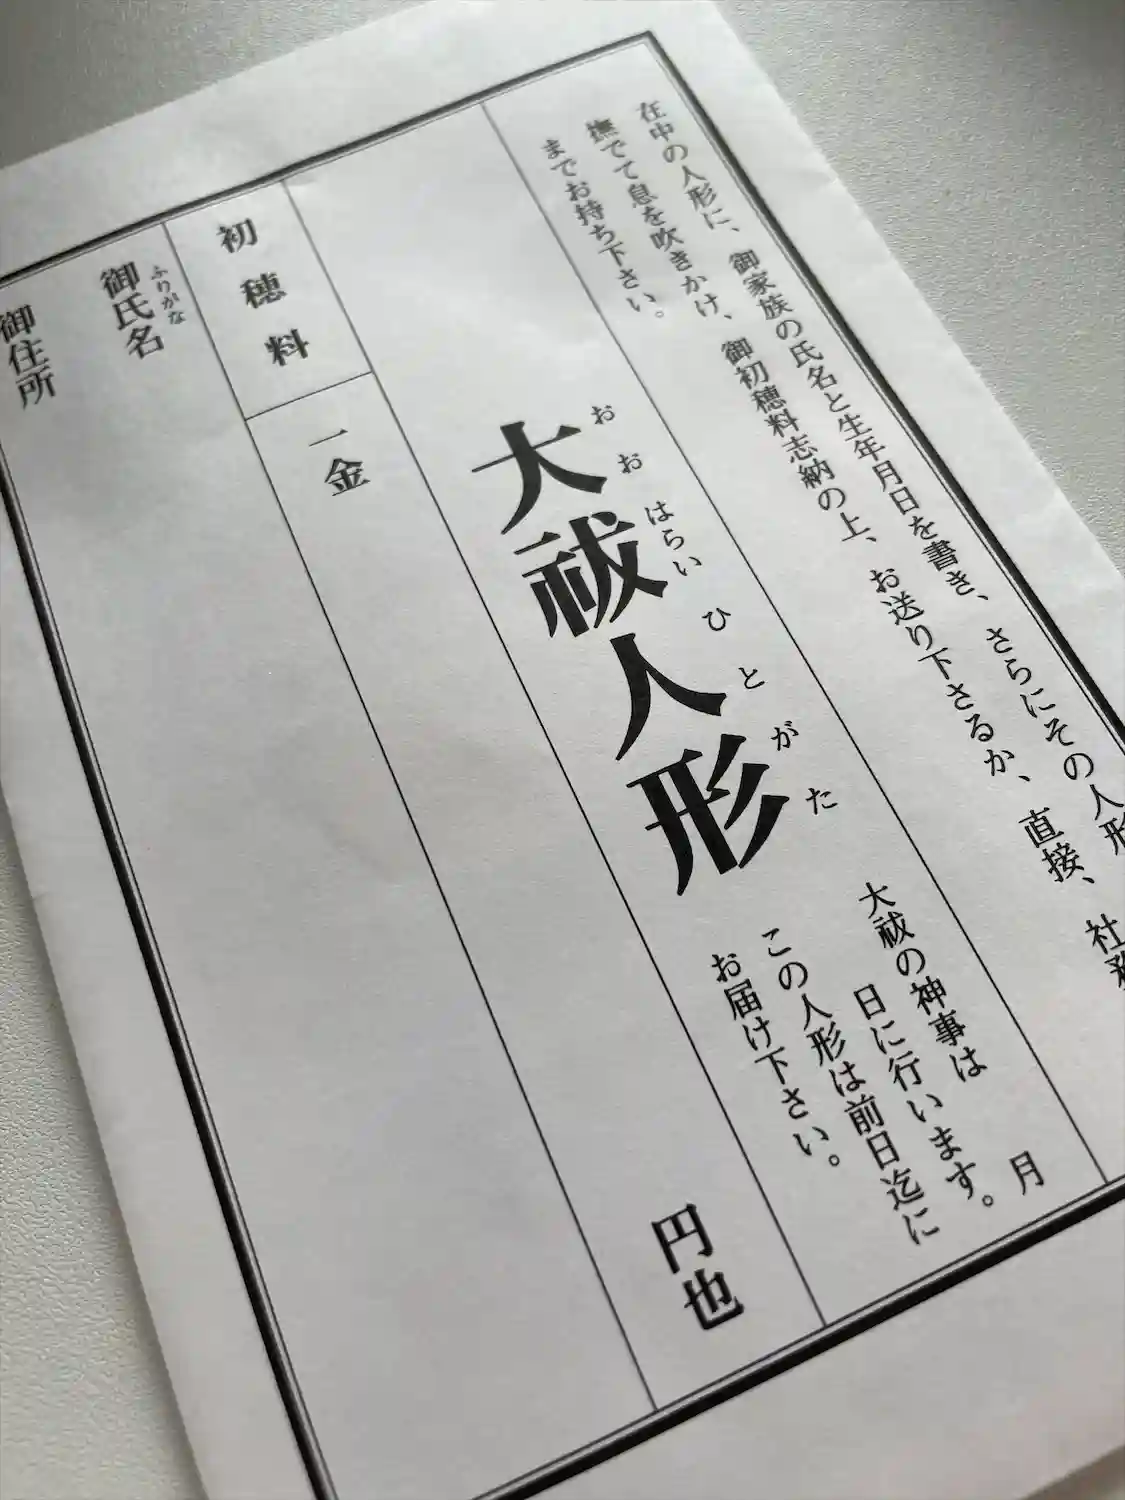 在中の人形に、御家族の氏名と生年月日を書き、さらにその人形
撫でて息を吹きかけ、御初穂料志納の上、お送り下さるか、直接、社務
までお持ち下さい。
おおはらいひとがた
大祓人形
大祓の神事は 月
日に行います。
この人形は前日迄に
お届け下さい。
初穂料
一金
円也
ふりがな
御氏名
御住所